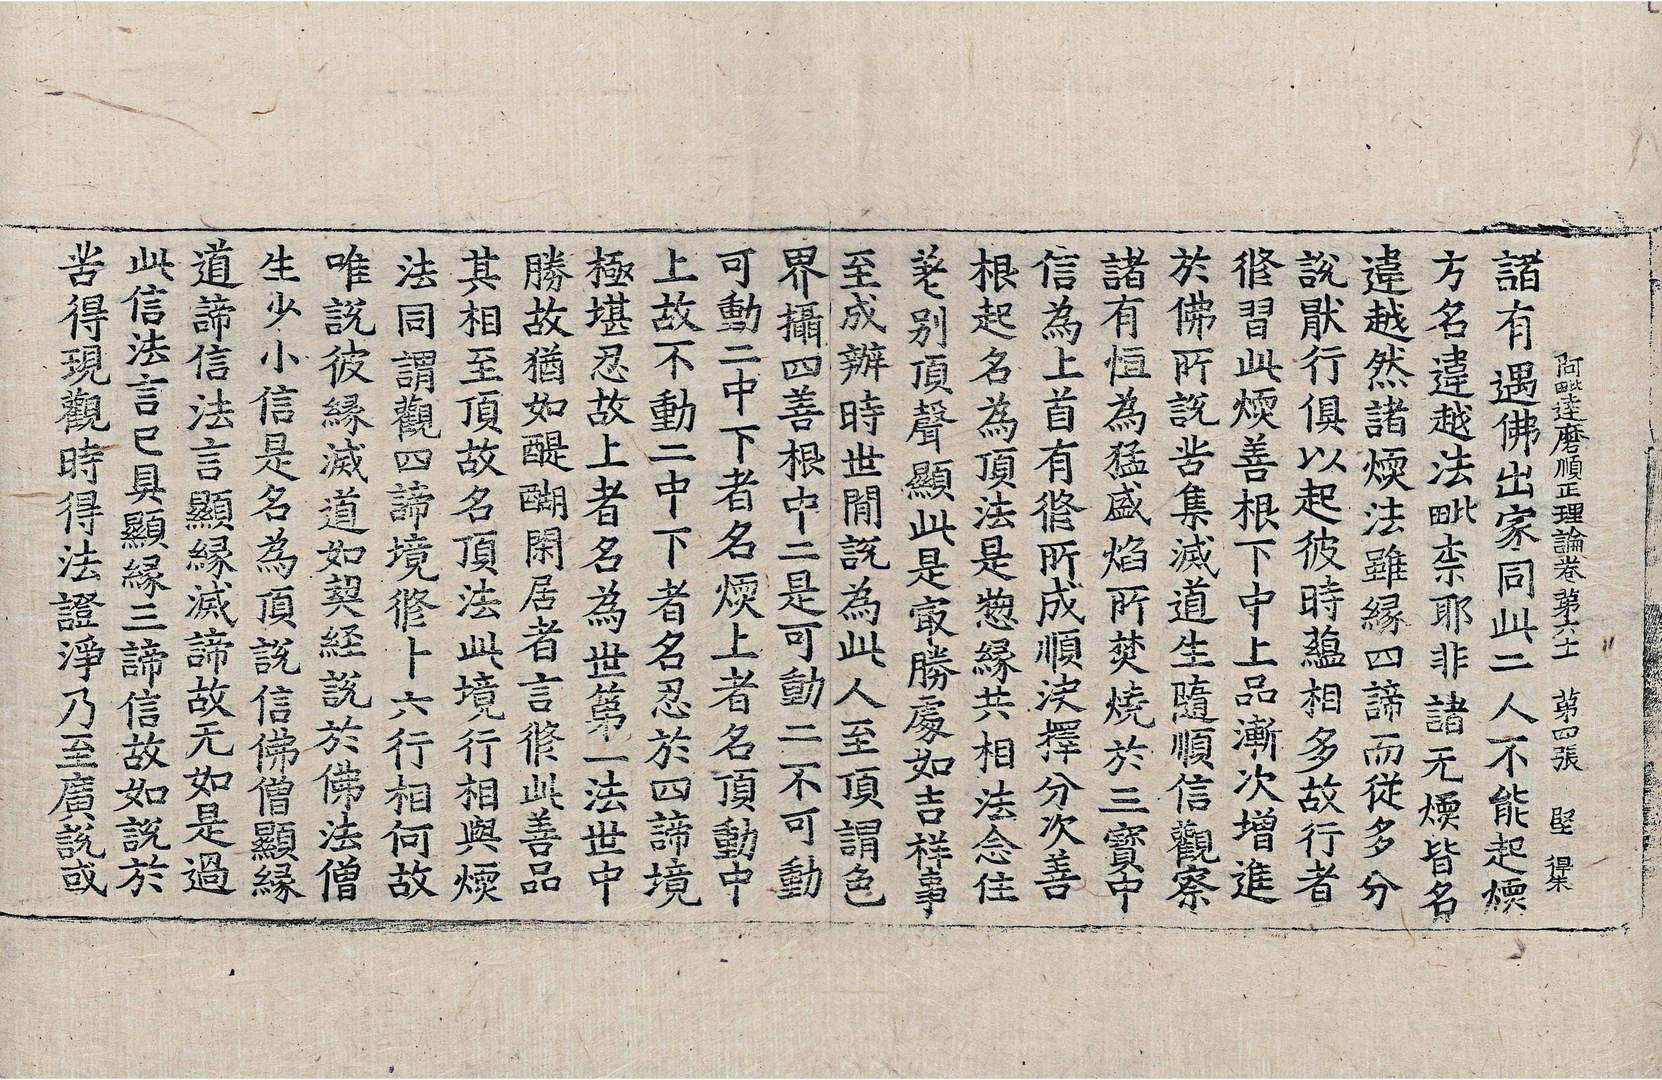 阿毗達磨順正理論卷第六十一 第四張 堅 得朱
諸有遇佛出家同此二人不能起煗
方名違越法毗柰耶非諸无煗皆名
違越然諸煗法雖緣四諦而從多分
說猒行俱以起彼時蘊相多故行者
修習此煗善根下中上品漸次增進
於佛所說苦集滅道生隨順信觀察
諸有恒為猛盛焰所焚燒於三寶中
信為上首有修所成順決擇分次善
根起名為頂法是緫緣共相法念住
差別頂聲顯此是㝡勝處如吉祥事
至成辦時世閒說為此人至頂謂色
界攝四善根中二是可動二不可動
可動二中下者名煗上者名頂動中
上故不動二中下者名忍於四諦境
極堪忍故上者名為世第一法世中
勝故猶如醍醐閑居者言修此善品
其相至頂故名頂法此境行相與煗
法同謂觀四諦境修十六行相何故
唯說彼緣滅道如契経說於佛法僧
生少小信是名為頂說信佛僧顯緣
道諦信法言顯緣滅諦故无如是過
此信法言已具顯緣三諦信故如說於
苦得現觀時得法證淨乃至廣說或